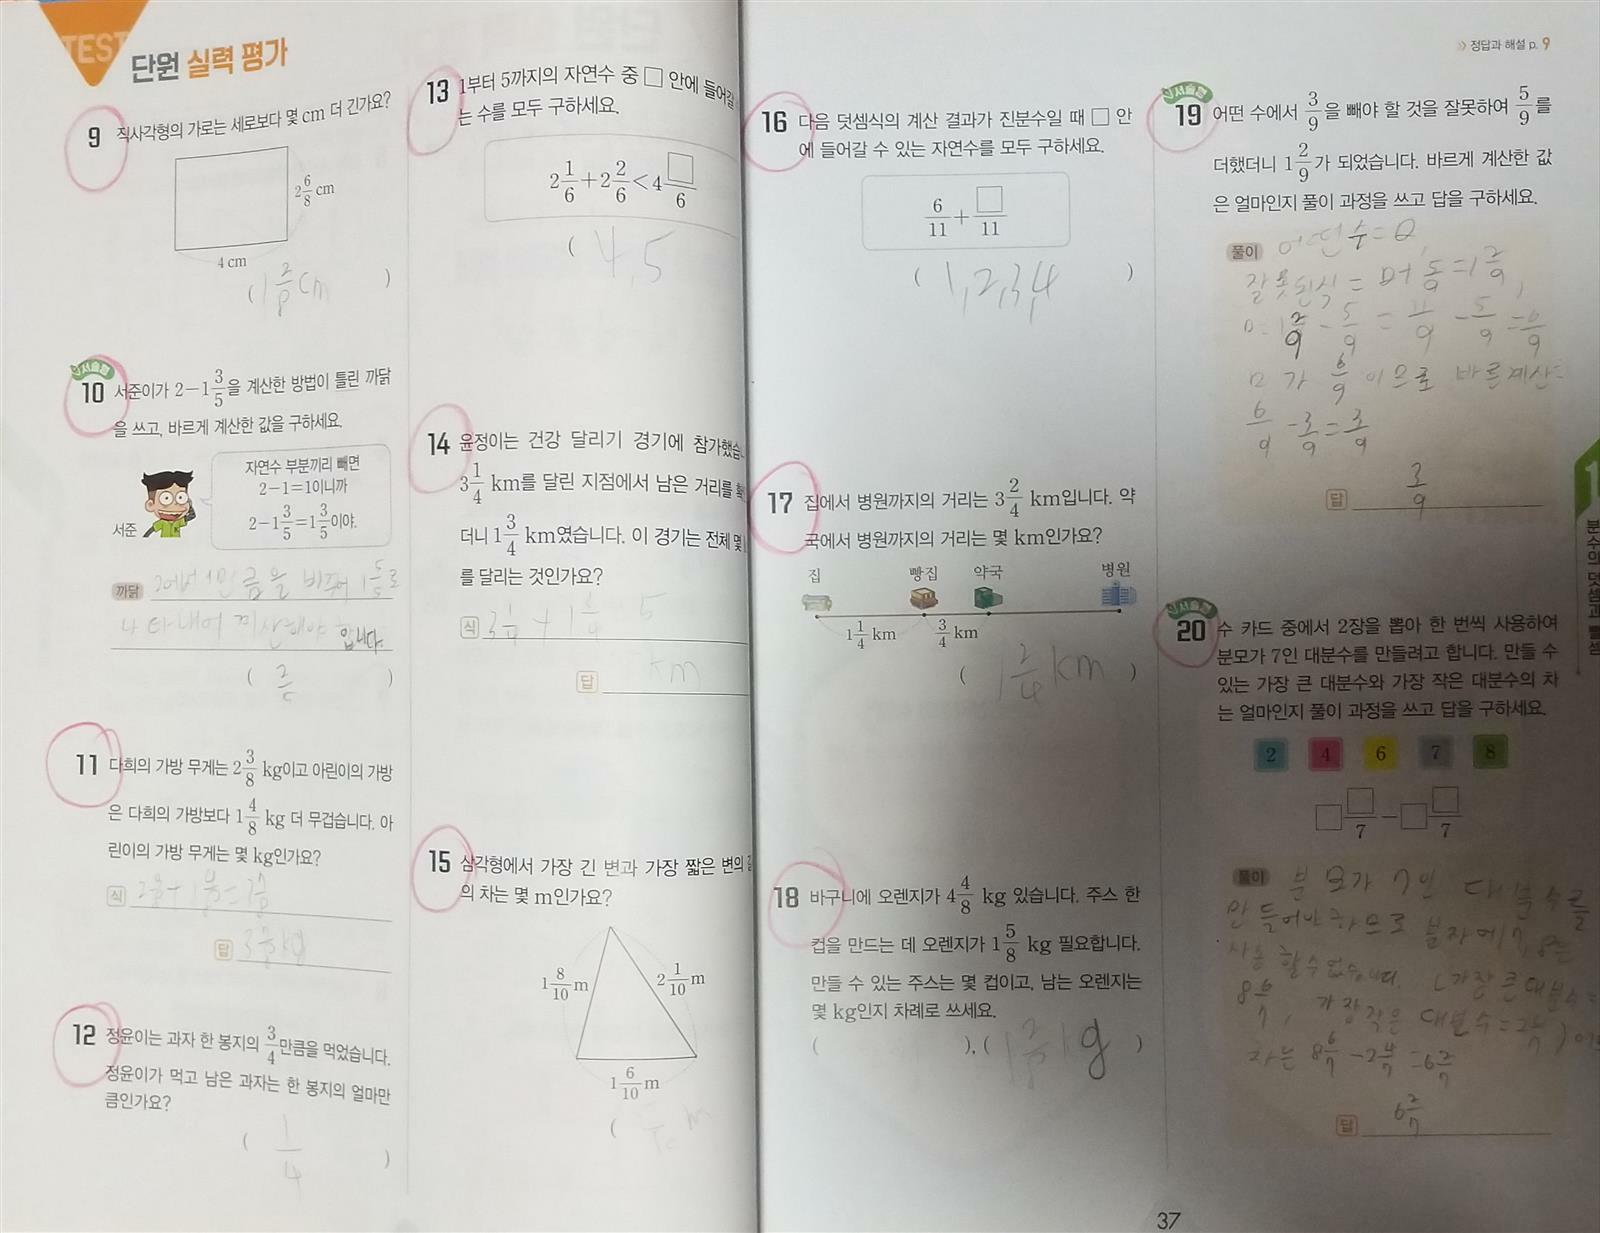 TEST
단원 실력 평가
9 직사각형의 가로는 세로보다 몇 cm 더 긴가요?
2 6/8 cm
4 cm
(1 2/8 cm)
서술형
10 서준이가 2-1 3/5을 계산한 방법이 틀린 까닭
을 쓰고, 바르게 계산한 값을 구하세요.
자연수 부분끼리 빼면
2-1=1이니까
2-1 3/5=1 3/5이야.
서준
까닭 2에서 1만큼을 바꿔 1 5/5로
나타내어 계산해야 합니다.
(2/5)
11 다희의 가방 무게는 2 3/8 kg이고 아린이의 가방
은 다희의 가방보다 1 4/8 kg 더 무겁습니다. 아
린이의 가방 무게는 몇 kg인가요?
식 2 3/8 + 1 4/8 = 3 7/8
답 3 7/8 kg
12 정윤이는 과자 한 봉지의 3/4만큼을 먹었습니다.
정윤이가 먹고 남은 과자는 한 봉지의 얼마만
큼인가요?
(1/4)
13 1부터 5까지의 자연수 중 □ 안에 들어갈
는 수를 모두 구하세요.
2 1/6+2 2/6<4 □/6
(4, 5
14 윤정이는 건강 달리기 경기에 참가했습니
3 1/4 km를 달린 지점에서 남은 거리를
더니 1 3/4 km였습니다. 이 경기는 전체 몇
를 달리는 것인가요?
식 3 1/4 + 1 3/4 5
답 km
15 삼각형에서 가장 긴 변과 가장 짧은 변의
의 차는 몇 m인가요?
1 8/10 m
2 1/10 m
1 6/10 m
( m
정답과 해설 p. 9
16 다음 덧셈식의 계산 결과가 진분수일 때 □ 안
에 들어갈 수 있는 자연수를 모두 구하세요.
6/11 + □/11
(1, 2, 3, 4)
17 집에서 병원까지의 거리는 3 2/4 km입니다. 약
국에서 병원까지의 거리는 몇 km인가요?
집 빵집 약국 병원
1 1/4 km 3/4 km
(1 2/4 km)
18 바구니에 오렌지가 4 4/8 kg 있습니다. 주스 한
컵을 만드는 데 오렌지가 1 5/8 kg 필요합니다.
만들 수 있는 주스는 몇 컵이고, 남는 오렌지는
몇 kg인지 차례로 쓰세요.
( ), (1 2/8 kg)
서술형
19 어떤 수에서 3/9을 빼야 할 것을 잘못하여 5/9를
더했더니 1 2/9가 되었습니다. 바르게 계산한 값
은 얼마인지 풀이 과정을 쓰고 답을 구하세요.
풀이 어떤 수=□,
잘못된식 = □+5/9=1 2/9,
□=1 2/9 - 5/9 = 11/9 - 5/9 = 6/9
□가 6/9이므로 바른계산=
6/9 - 3/9 = 3/9
답 3/9
서술형
20 수 카드 중에서 2장을 뽑아 한 번씩 사용하여
분모가 7인 대분수를 만들려고 합니다. 만들 수
있는 가장 큰 대분수와 가장 작은 대분수의 차
는 얼마인지 풀이 과정을 쓰고 답을 구하세요.
2 4 6 7 8
□ □/7 - □ □/7
풀이 분모가 7인 대분수를
만들어야하므로 분자에 7, 8은
사용 할 수 없습니다. (가장 큰 대분수=
8 6/7, 가장 작은 대분수=2 4/7)
차는 8 6/7 - 2 4/7 = 6 2/7
답 6 2/7
1
분수의 덧셈과 뺄셈
37